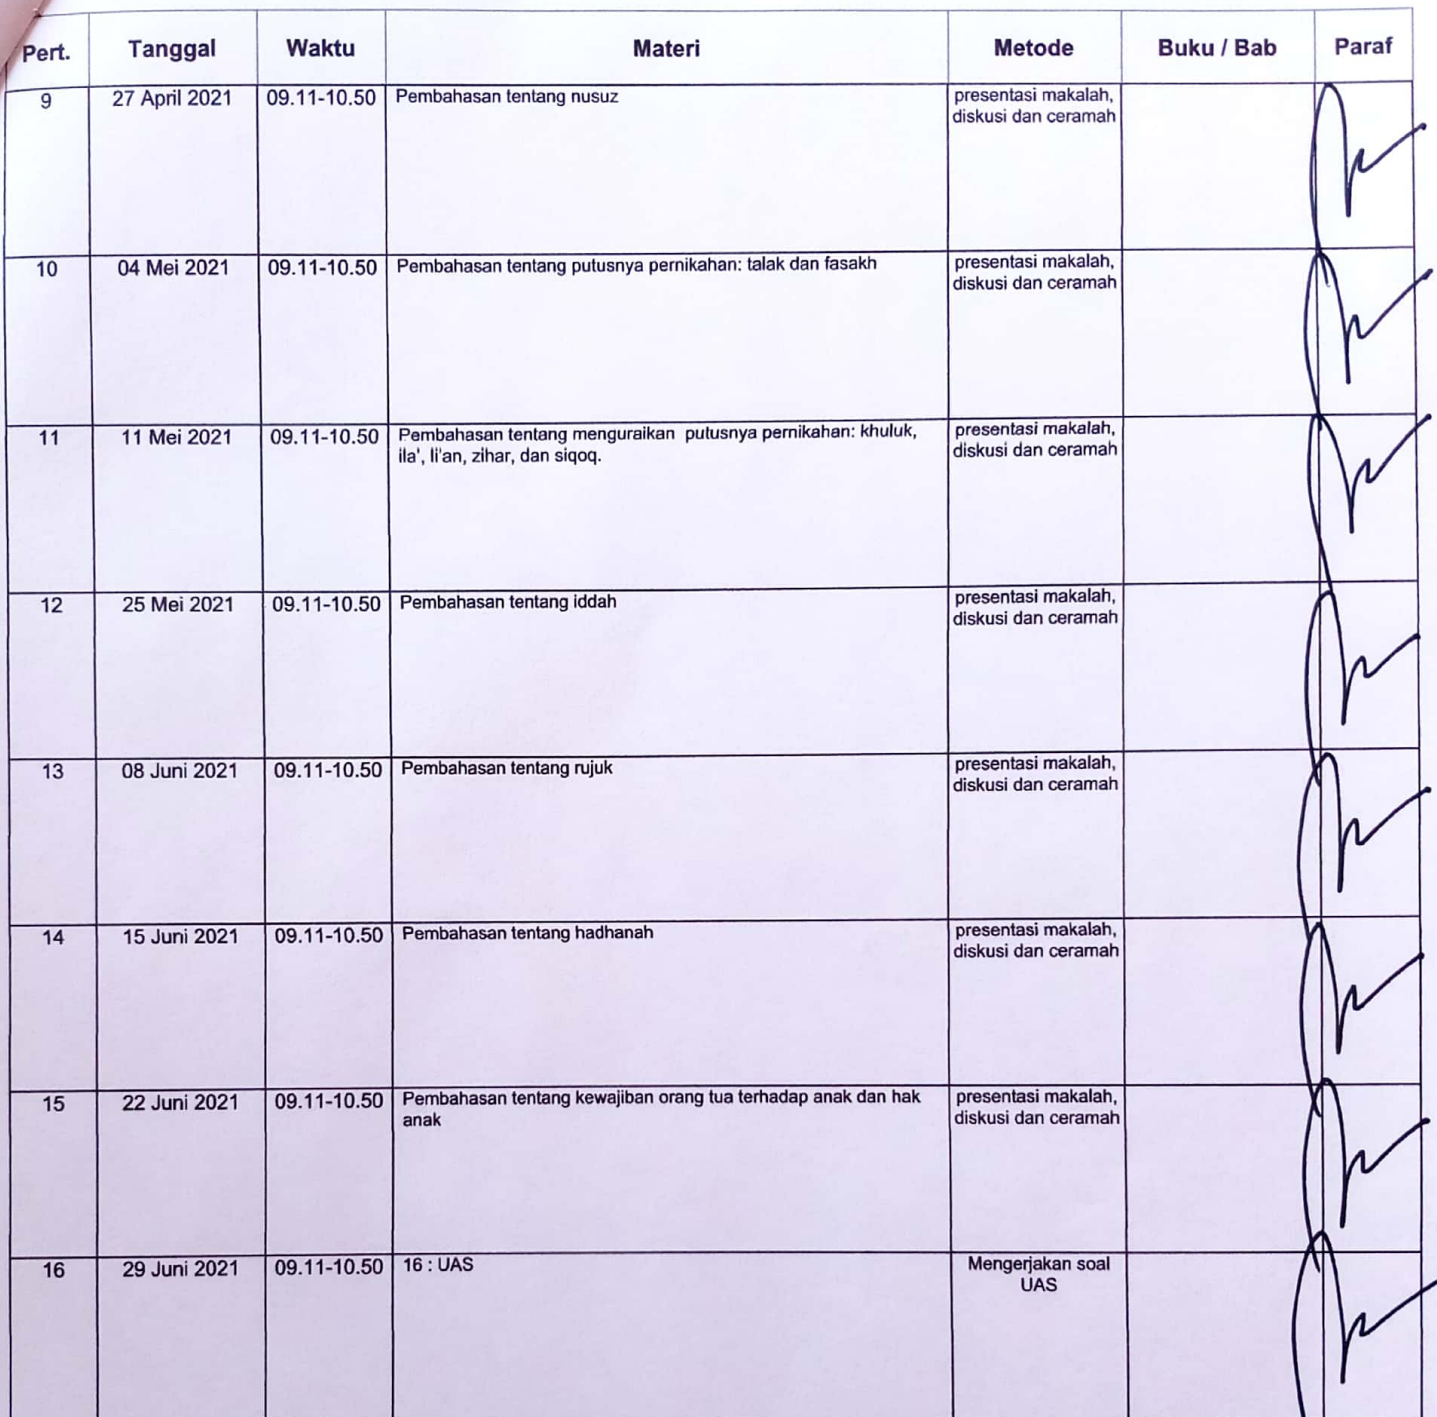 Pert. Tanggal Waktu Materi Metode Buku / Bab Paraf
9 27 April 2021 09.11-10.50 Pembahasan tentang nusuz presentasi makalah,
diskusi dan ceramah
10 04 Mei 2021 09.11-10.50 Pembahasan tentang putusnya pernikahan: talak dan fasakh presentasi makalah,
diskusi dan ceramah
11 11 Mei 2021 09.11-10.50 Pembahasan tentang menguraikan putusnya pernikahan: khuluk, presentasi makalah,
ila', li'an, zihar, dan siqoq. diskusi dan ceramah
12 25 Mei 2021 09.11-10.50 Pembahasan tentang iddah presentasi makalah,
diskusi dan ceramah
13 08 Juni 2021 09.11-10.50 Pembahasan tentang rujuk presentasi makalah,
diskusi dan ceramah
14 15 Juni 2021 09.11-10.50 Pembahasan tentang hadhanah presentasi makalah,
diskusi dan ceramah
15 22 Juni 2021 09.11-10.50 Pembahasan tentang kewajiban orang tua terhadap anak dan hak presentasi makalah,
anak diskusi dan ceramah
16 29 Juni 2021 09.11-10.50 16 : UAS Mengerjakan soal
UAS